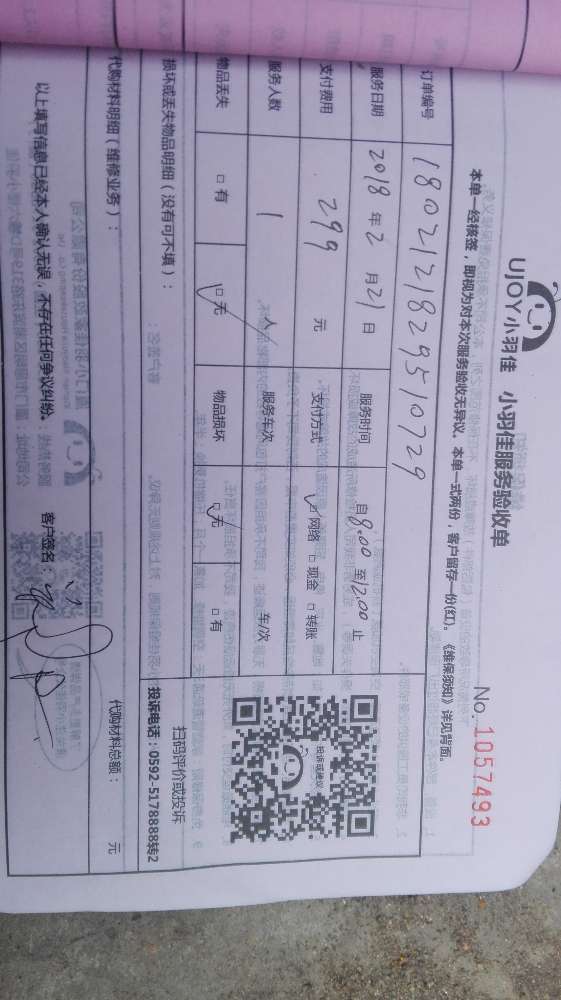 UJOY小羽佳 小羽佳服务验收单
No. 1057493
本单一经核签，即视为对本次服务验收无异议。本单一式两份，客户留存一份(红)。《维保须知》详见背面。
订单编号 1802121829510729
服务日期 2018 年 2 月 21 日 服务时间 自 8.00 至 12.00 止
支付费用 299 元 支付方式 ☑网络 □现金 □转账
服务人数 1 人 服务车次 车/次
物品丢失 □有 ☑无 物品损坏 ☑无 □有
投诉或建议
扫码评价或投诉
投诉电话：0592-5178888转2
损坏或丢失物品明细（没有可不填）：
代购材料明细（维修业务）：
代购材料总额： 元
以上填写信息已经本人确认无误，不存在任何争议纠纷。 客户签名：